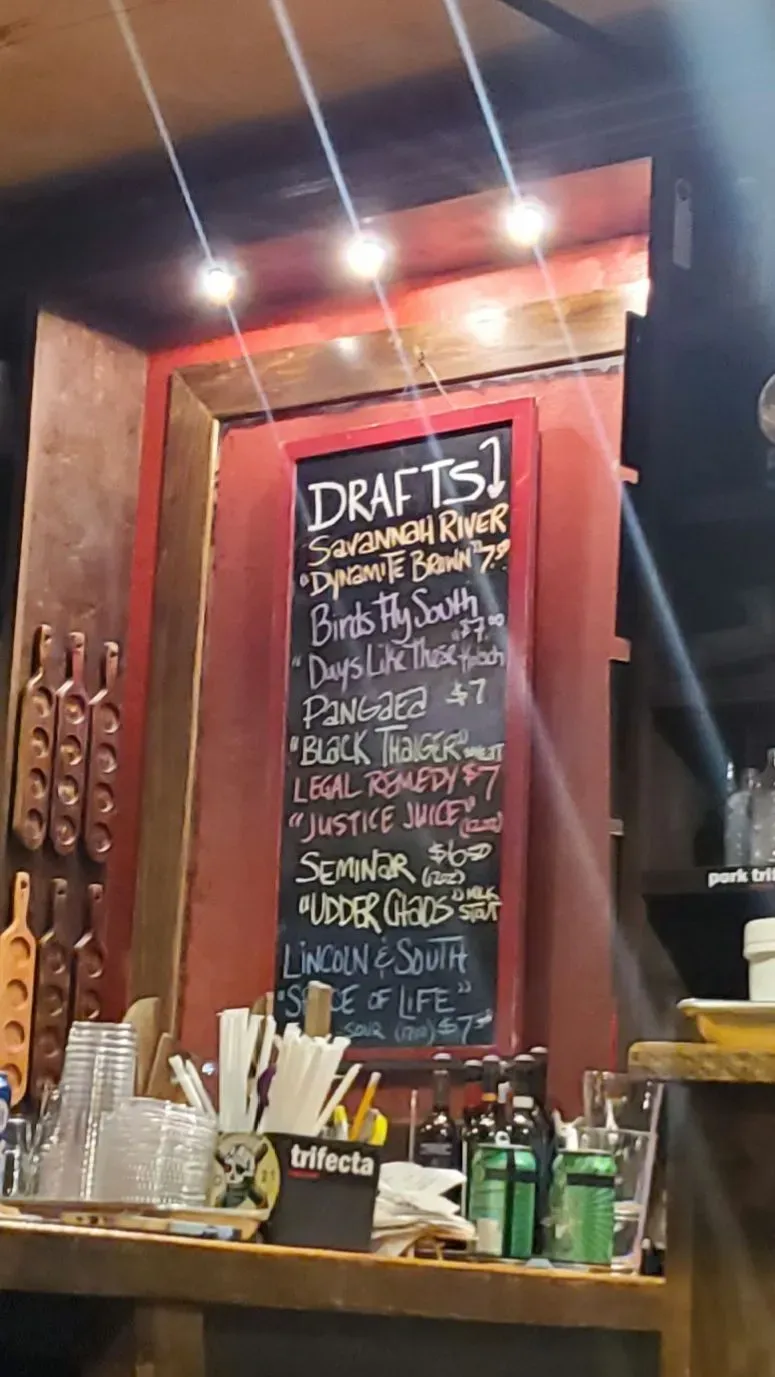 DRAFTS
Savannah River
"Dynamite Brown" 7.50
Birds Fly South
$7.00
"Days Like These" Kolsch
Pangaea $7
"Black Thaiger" 
Legal Remedy $7
"Justice Juice" (12oz)
Seminar $6.50
(12oz)
"Udder Chaos" Milk
Stout
Lincoln & South
"Spice of Life"
Sour (12oz) $7.50
trifecta
pork tri
21